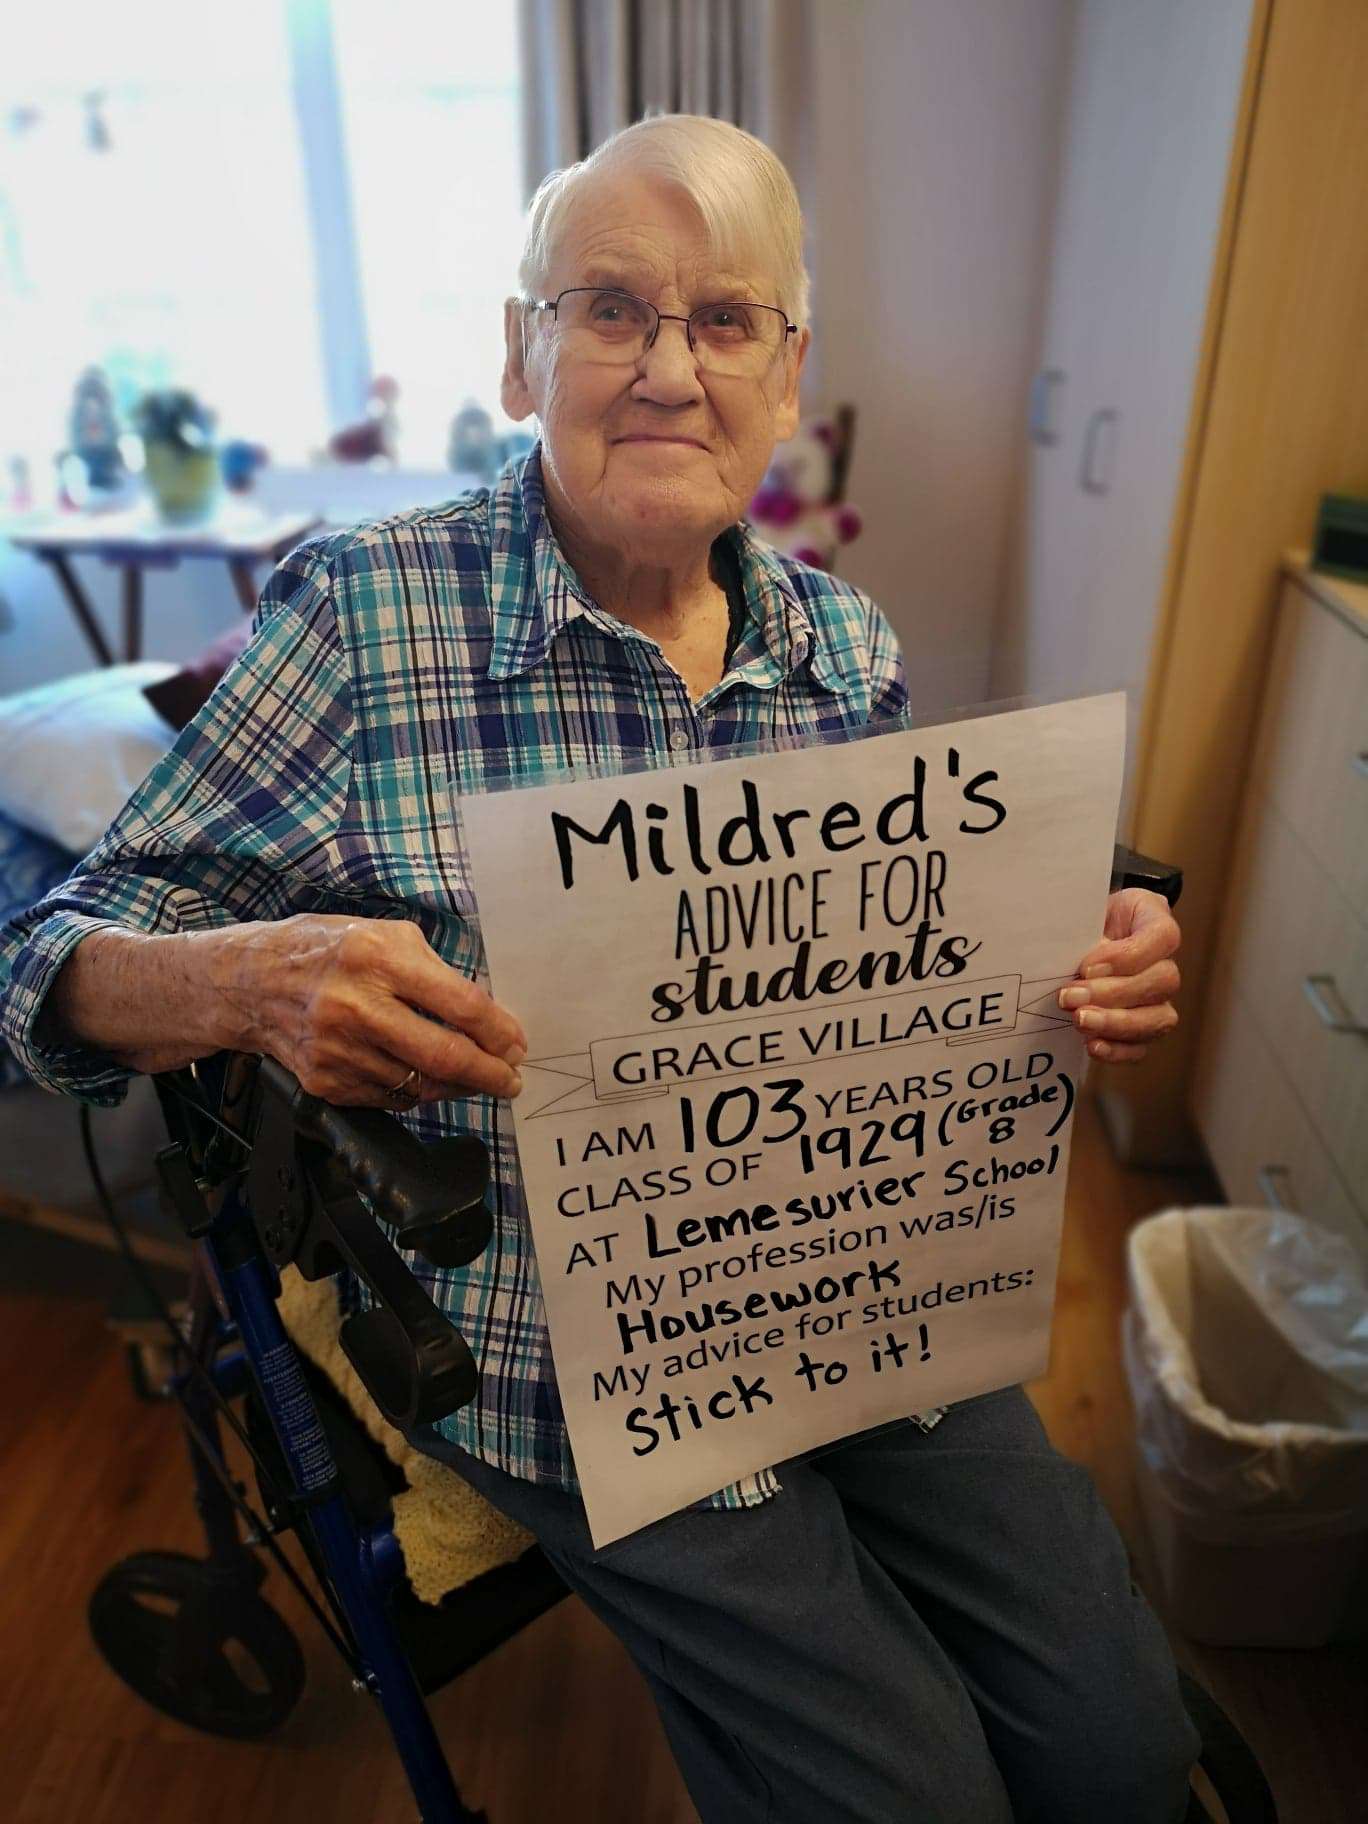 Mildred's
ADVICE FOR
students
GRACE VILLAGE
I AM 103 YEARS OLD
CLASS OF 1929 (Grade 8)
AT Lemesurier School
My profession was/is
Housework
My advice for students:
Stick to it!